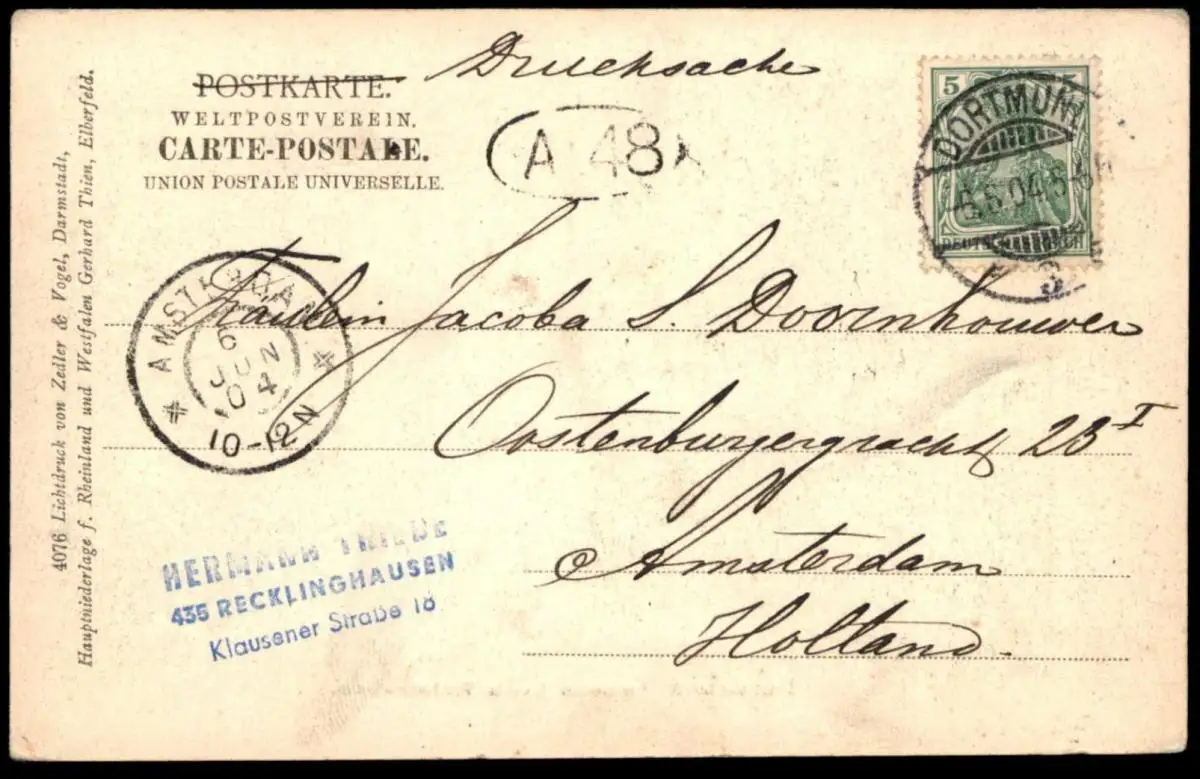 Drucksache
POSTKARTE.
WELTPOSTVEREIN.
CARTE-POSTALE.
UNION POSTALE UNIVERSELLE.
A 48
5 5
DEUTSCHES REICH
DORTMUND
5.6.04.5-6N
AMSTERDAM
6
JUN
04
10-12N
Fräulein Jacoba S. Doornhouwer
Oostenburgergracht 23 I
Amsterdam
Holland.
HERMANN THIEDE
435 RECKLINGHAUSEN
Klausener Straße 18
4076 Lichtdruck von Zedler & Vogel, Darmstadt,
Hauptniederlage f. Rheinland und Westfalen Gerhard Thien, Elberfeld.